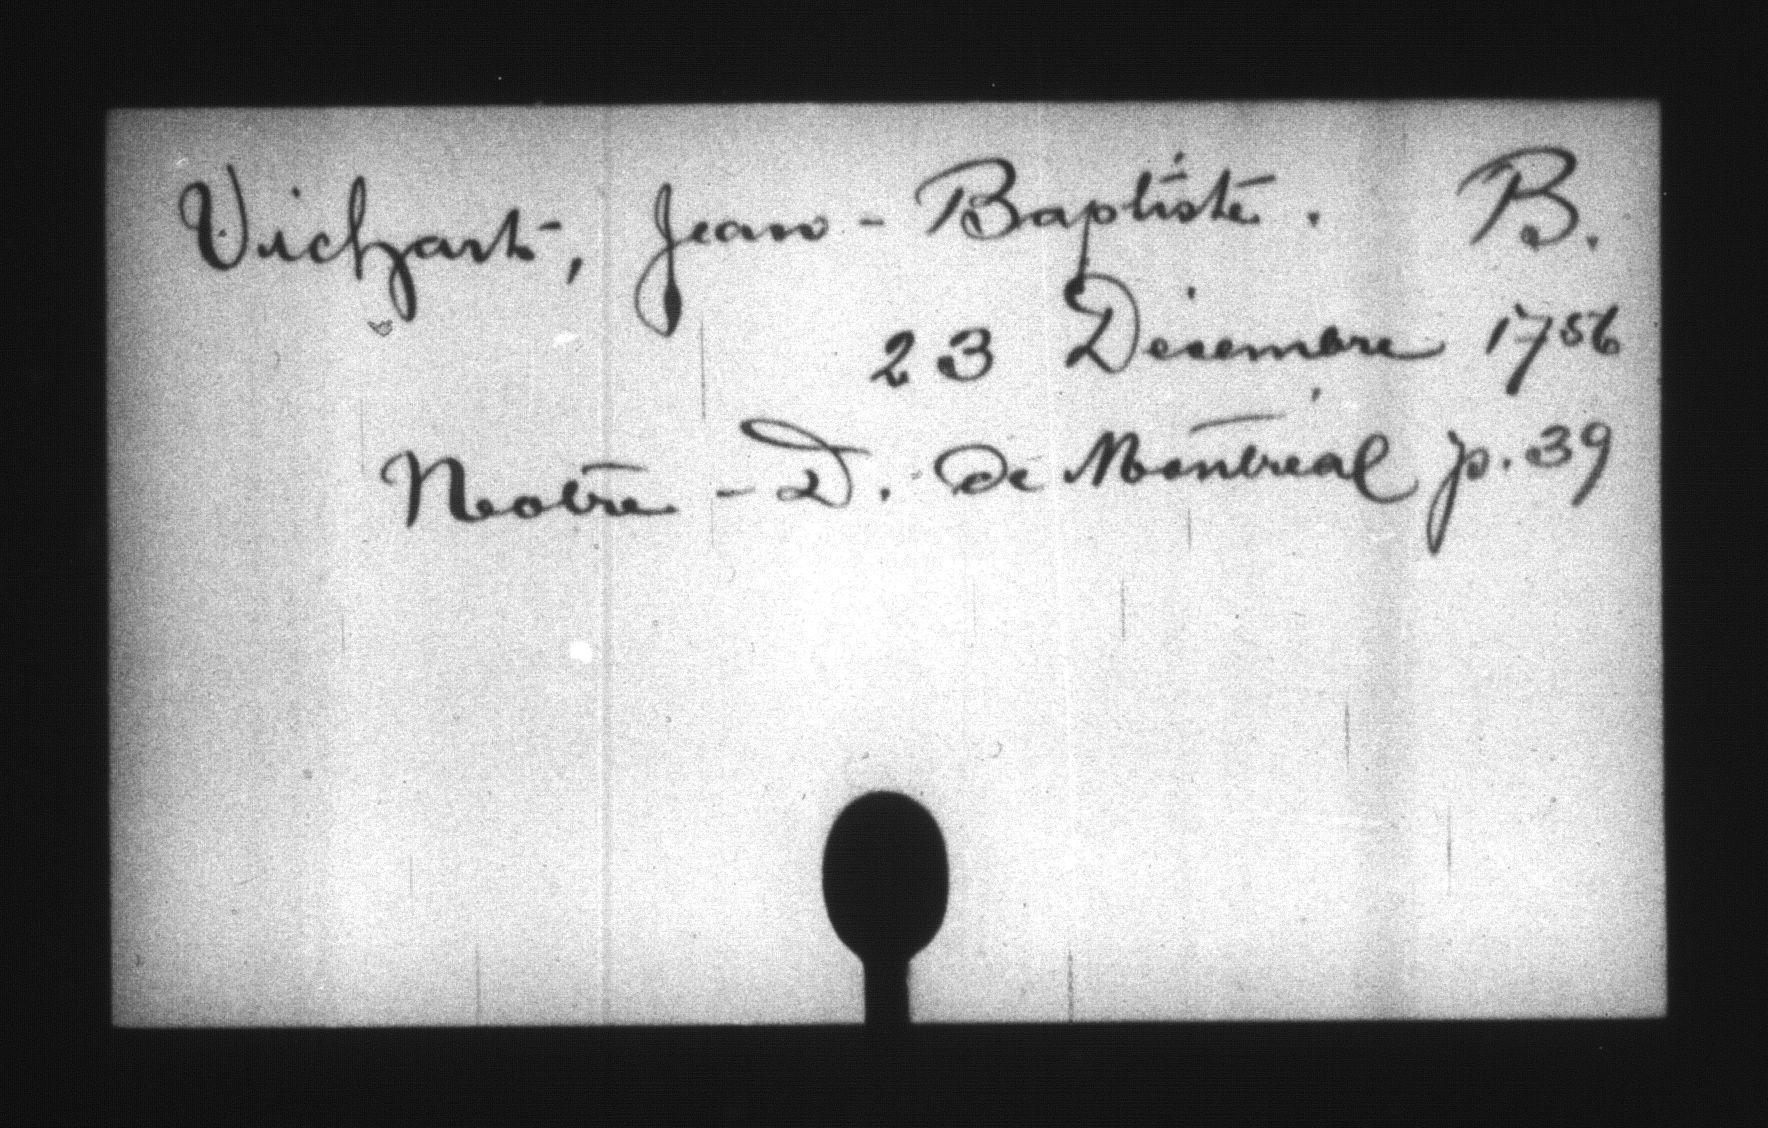 Vichart, Jean-Baptiste. B.
23 Décembre 1756
Notre-D. de Montréal p. 39